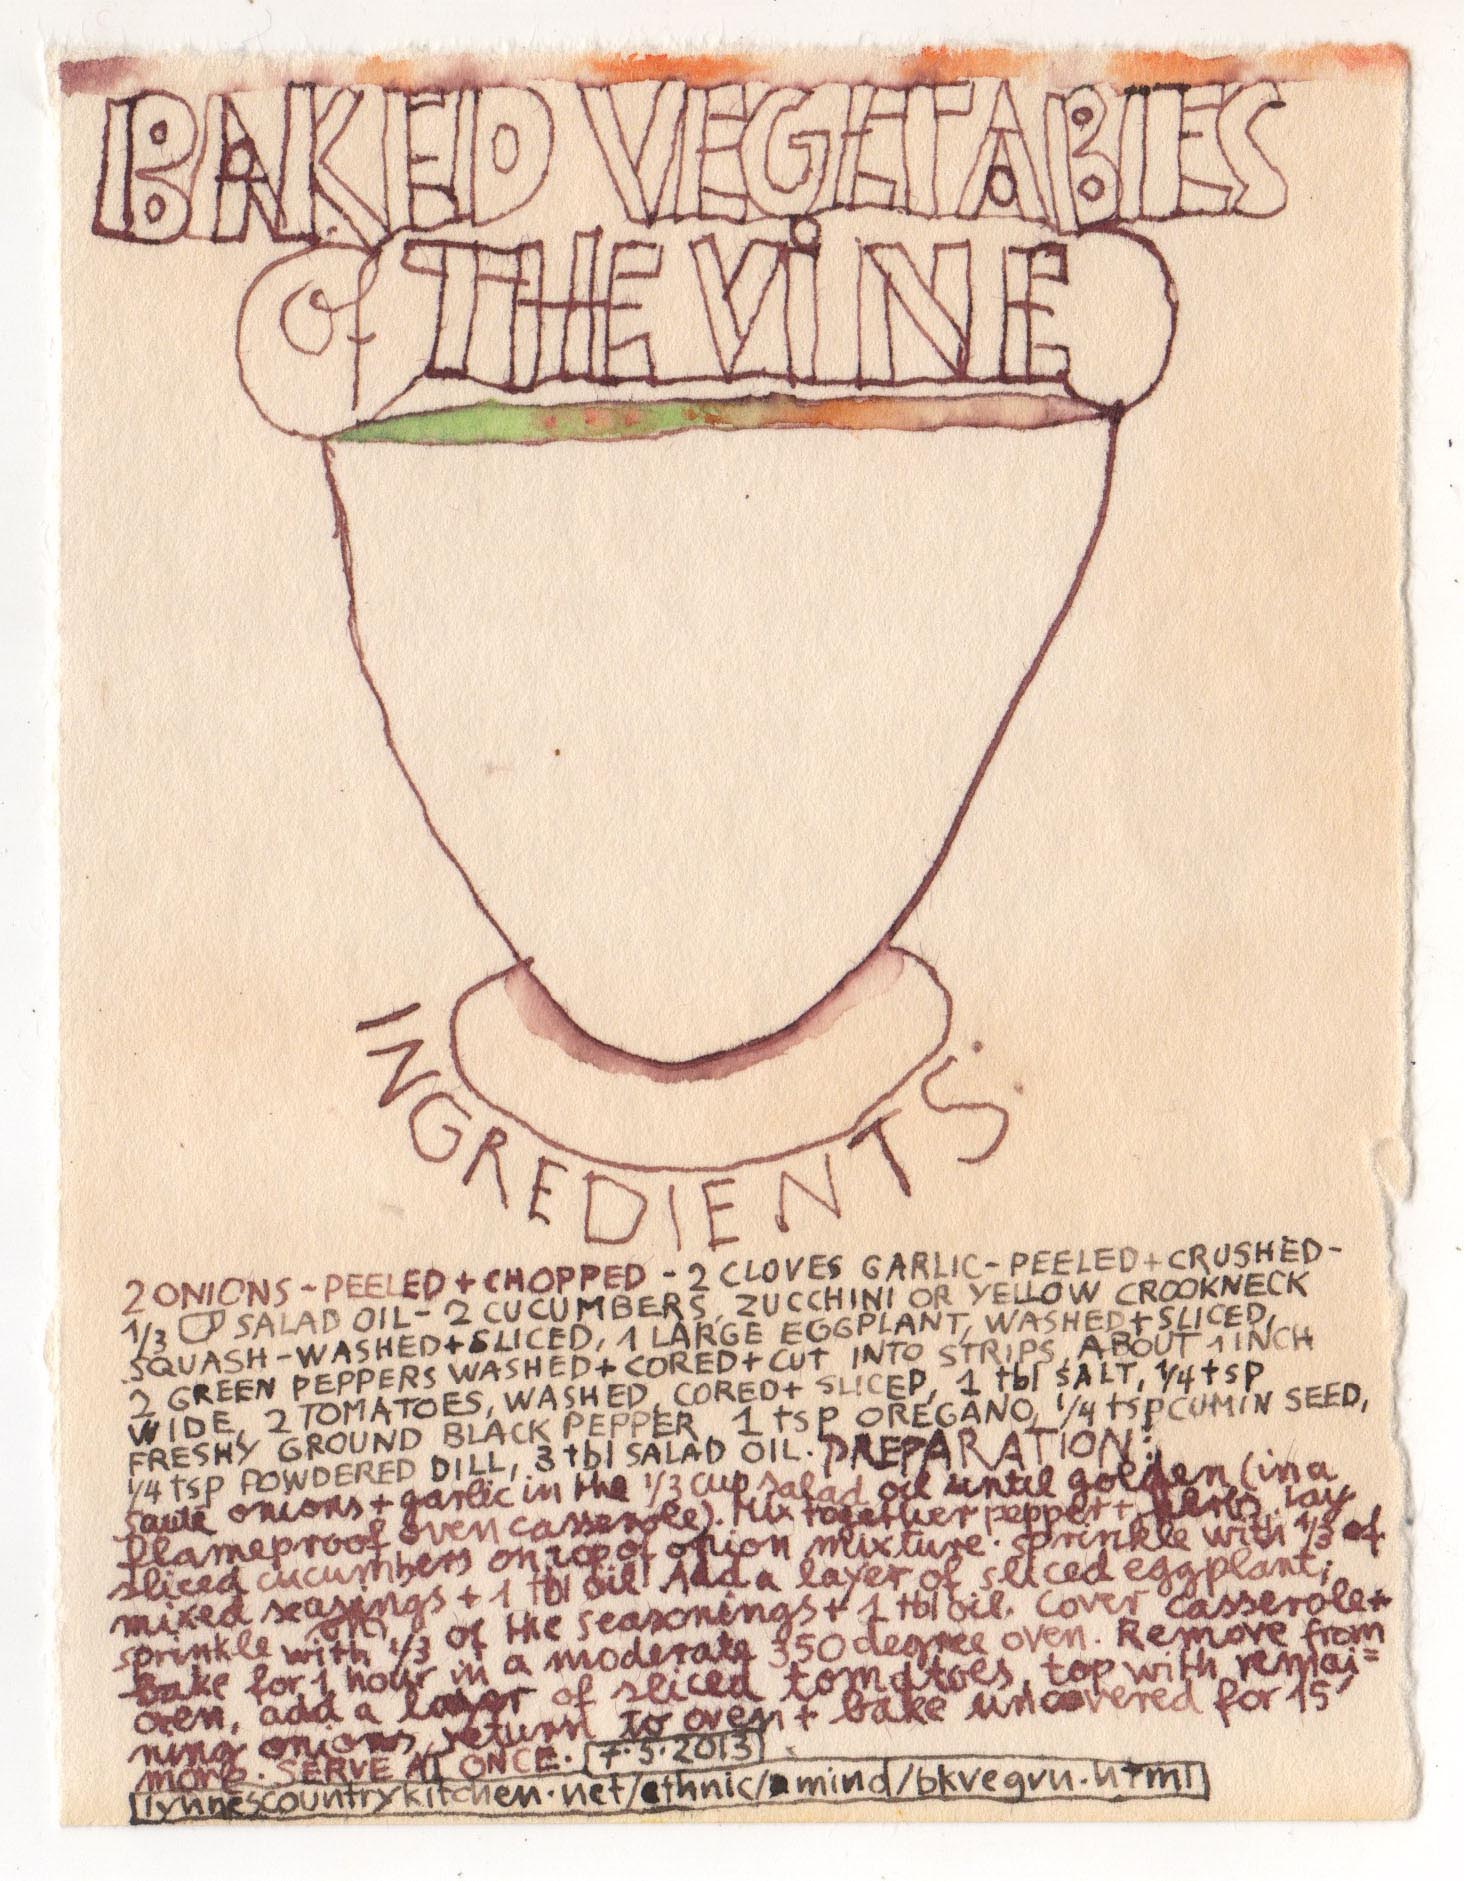 BAKED VEGETABLES
Of THE ViNE
INGREDIENTS:
2 ONIONS - PEELED + CHOPPED - 2 CLOVES GARLIC - PEELED + CRUSHED -
1/3 SALAD OIL - 2 CUCUMBERS, ZUCCHINI OR YELLOW CROOKNECK
SQUASH - WASHED + SLICED, 1 LARGE EGGPLANT, WASHED + SLICED,
2 GREEN PEPPERS WASHED + CORED + CUT INTO STRIPS, ABOUT 1 INCH
WIDE, 2 TOMATOES, WASHED, CORED + SLICED, 1 tbl SALT, 1/4 tsp
FRESHY GROUND BLACK PEPPER, 1 tsp OREGANO, 1/4 tsp CUMIN SEED,
1/4 tsp POWDERED DILL, 3 tbl SALAD OIL. PREPARATION:
saute onions + garlic in the 1/3 cup salad oil until golden (in a
flameproof oven casserole). Mix together pepper + herbs. Lay
sliced cucumbers on top of onion mixture. sprinkle with 1/3 of
mixed seasings + 1 tbl oil. Add a layer of sliced eggplant;
sprinkle with 1/3 of the seasonings + 1 tbl oil. Cover casserole +
Bake for 1 hour in a moderate 350 degree oven. Remove from
oven, add a layer of sliced tomatoes, top with remai=
ning onions, return to oven + bake uncovered for 15'
more. SERVE AT ONCE. 7.5.2013
lynnescountrykitchen.net/ethnic/amind/bkvegvn.html